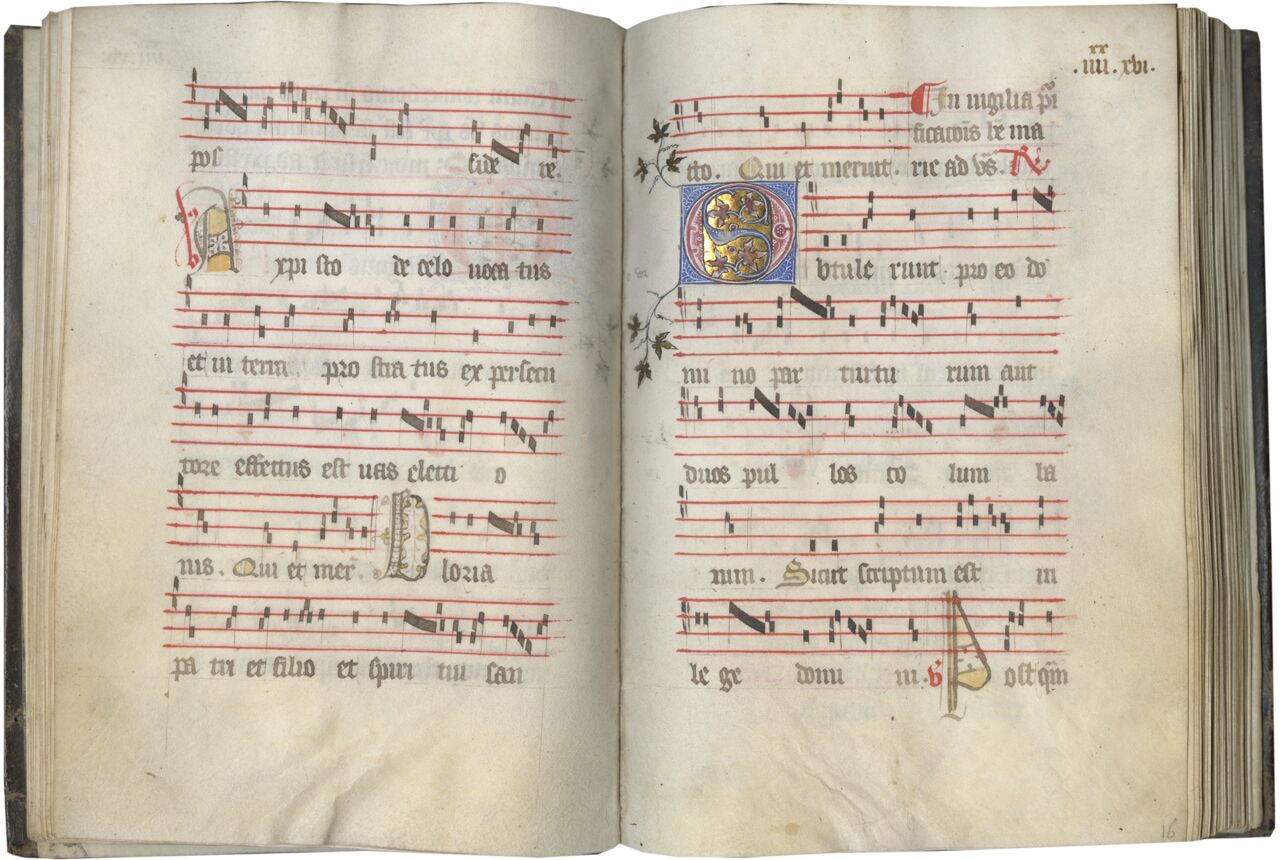 pos fide te.
A xpi sto de celo uoca tus
et in terra pro stra tus ex persecu
tore effectus est uas electi o
nis. Qui et mer. G loria
pa tri et filio et spiri tui san
.iiii. xvi.
xx
In uigilia puri
ficacois be ma
cto. Qui et meruit. rie ad vs. R
O btule runt pro eo do
mi no par turtu rum aut
duos pul los co lum ba
rum. Sicut scriptum est in
le ge domi ni. V P ostqm
16